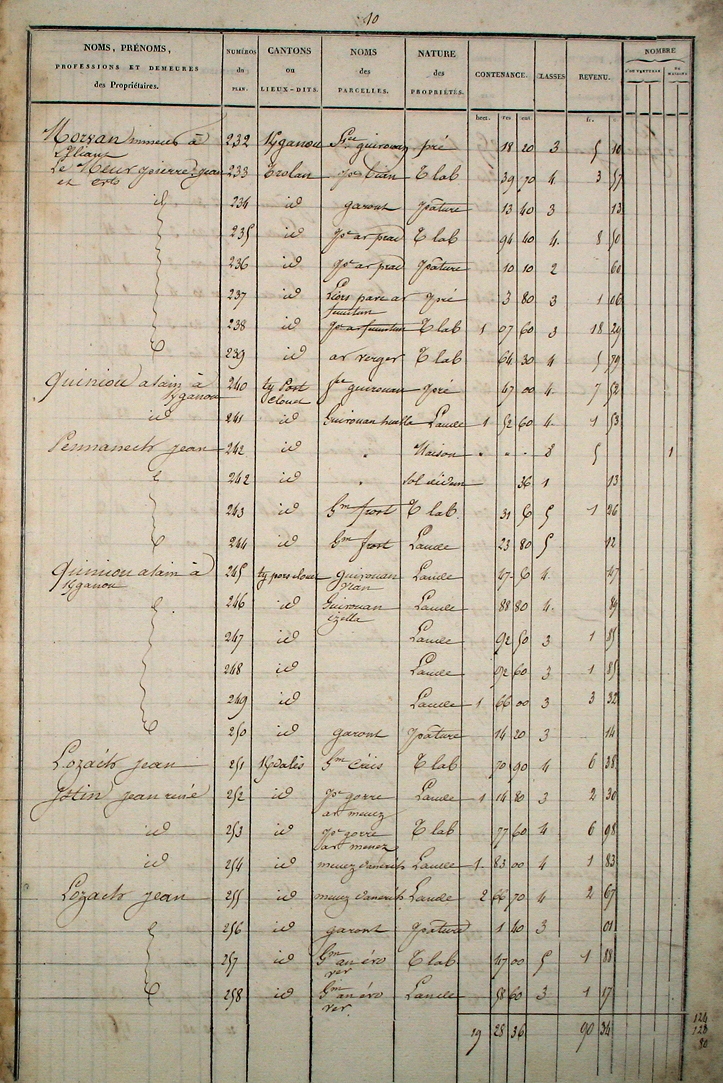 10
NOMS, PRÉNOMS, PROFESSIONS ET DEMEURES des Propriétaires. NUMÉROS du PLAN. CANTONS ou LIEUX-DITS. NOMS des PARCELLES. NATURE des PROPRIÉTÉS. CONTENANCE. CLASSES REVENU. NOMBRE
hect. ares cent. fr.
Morvan mineurs à Elliant 232 Kganou guirouay pré 18 20 3 5 10
Le Meur pierre jean et crts 233 Trolan bian T lab 39 70 4 3 57
id 234 id garont pâture 13 40 3 13
235 id pc ar prad T lab 94 40 4 8 50
236 id pc ar prad pâture 10 10 2 60
237 id Liors parc ar feunteun pré 3 80 3 1 06
238 id pc ar feunteun T lab 1 07 60 3 18 29
239 id ar verger T lab 64 30 4 5 79
Quiniou alain à Kganou 240 ty Port Clouet guirouan pré 47 00 4 7 52
id 241 id Guirouan huella Lande 1 52 60 4 1 53
Pennanech jean 242 id " Maison " " " 8 5 1
242 id " Sol et dum 36 1 13
243 id Gm frost T lab 31 50 5 1 26
244 id Gm frost Lande 23 80 5 12
Quiniou alain à Kganou 245 ty pors cloui guirouan vian Lande 47 50 4 47
246 id Guirouan izella Lande 88 80 4 89
247 id Lande 92 50 3 1 85
248 id Lande 92 60 3 1 85
249 id Lande 1 66 00 3 3 32
250 id garont pâture 14 20 3 14
Lozach jean 251 Kdalès Gm Creis T lab 70 90 4 6 38
Jotin jean rené 252 id pc gorre ar menez Lande 1 14 80 3 2 30
id 253 id pc gorre ar menez T lab 77 60 4 6 98
id 254 id menez Lande 1 83 00 4 1 83
Lozach jean 255 id menez Lande 2 66 70 4 2 67
256 id garont pâture 1 40 3 01
257 id Gm an éro ver T lab 47 00 5 1 88
258 id Gm an éro ver Lande 58 60 3 1 17
19 28 36 90 34
124
128
80